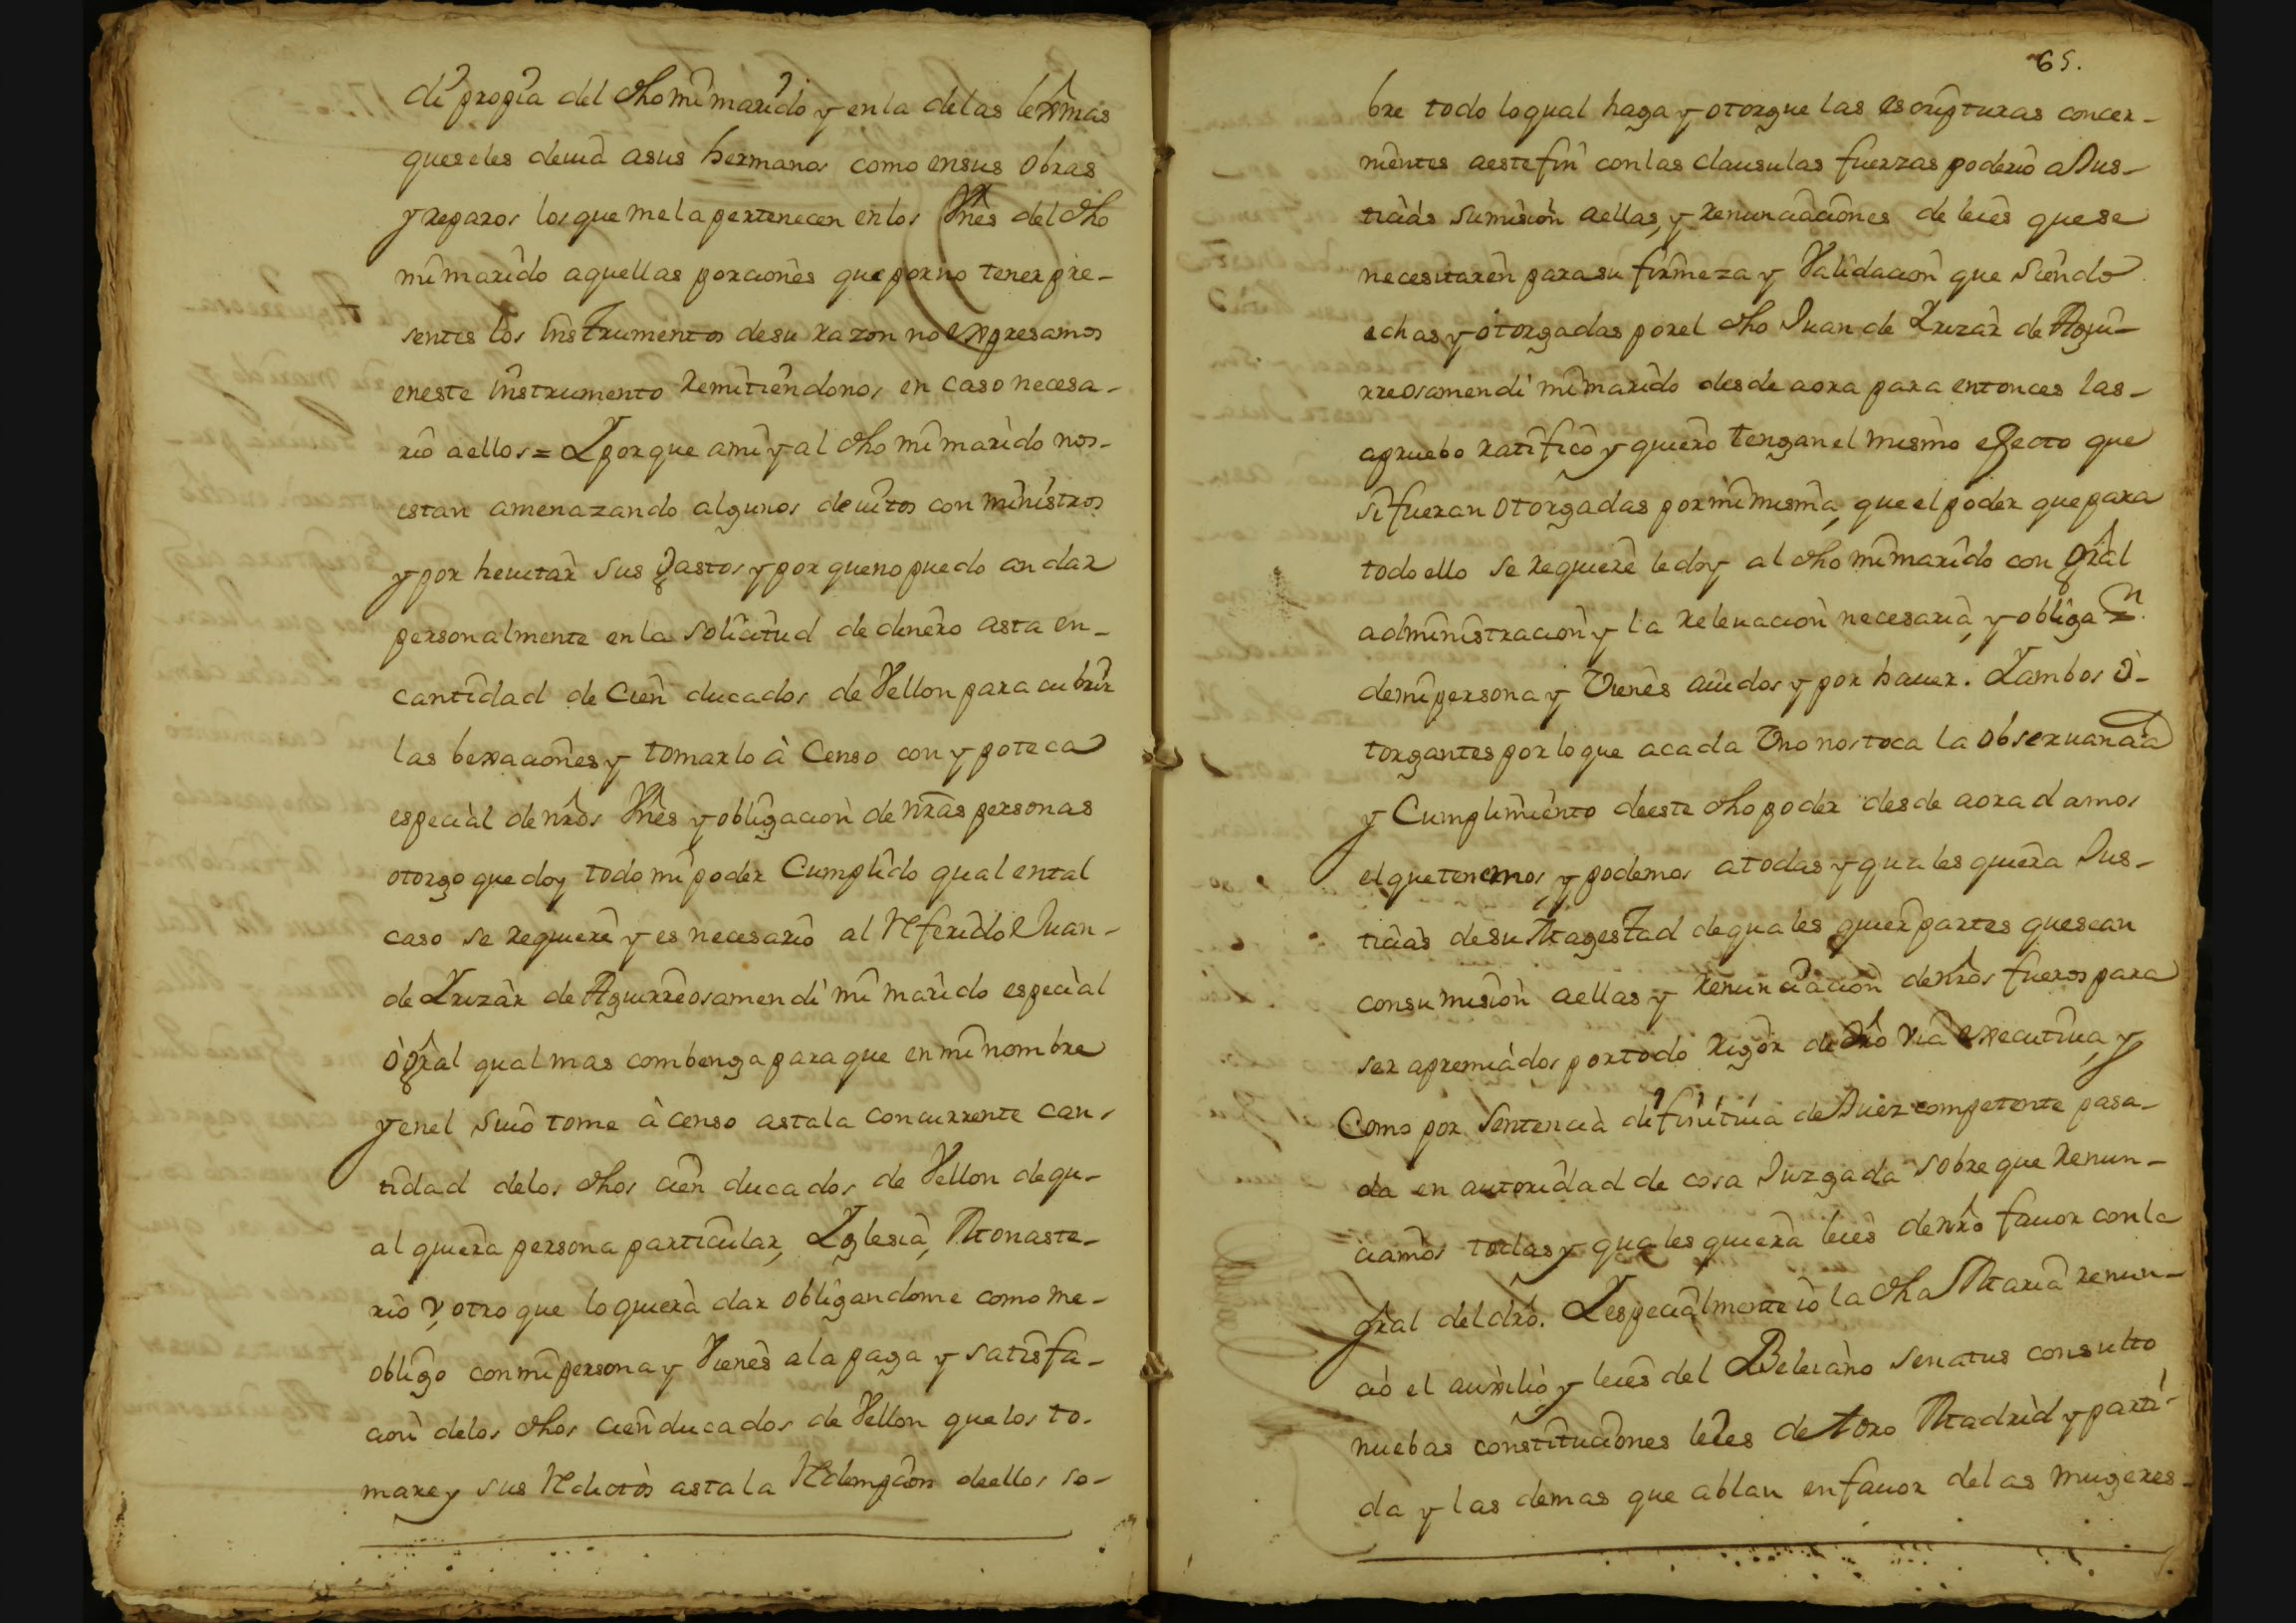 di propia del dho mi marido y en la de las lexmas
que se les deuia a sus hermanos como en sus obras
y reparos los que me la pertenecen en los Vnes del dho
mi marido aquellas porciones que por no tener pre-
sentes los Instrumentos de su razon no expresamos
en este Instrumento Remitiendonos en caso necesa-
rio a ellos = Y porque a mi y al dho mi marido nos-
estan amenazando algunos deuitos con ministros
y por heuitar sus gastos y por que no puedo andar
personalmente en la Solicitud de dinero asta en-
cantidad de Cien ducados de Vellon para cubrir
las bexaciones y tomarlo à Censo con ypoteca
especial de nros Vnes y obligacion de nras personas
otorgo que doy todo mi poder Cumplido qual en tal
caso se requiere y es necesario al Referido Juan-
de Yrizar de Aguirreosamendi mi marido especial
ò gral qual mas combenga para que en mi nombre
y en el suio tome à censo asta la concurrente can-
tidad de los dhos cien ducados de Vellon de qu-
al quiera persona particular, Yglesia, Monaste-
rio v, otro que lo quiera dar obligandome como me-
obligo con mi persona y Vienes a la paga y satisfa-
cion de los dhos cien ducados de Vellon que los to-
mare y sus Redictos asta la Redempcion de ellos so-
65.
bre todo lo qual haga y otorgue las escripturas concer-
nientes a este fin con las clausulas fuerzas poderio a Jus-
ticias sumision a ellas, y renunciaciones de leies que se
necesitaren para su firmeza y Validacion que siendo
echas y otorgadas por el dho Juan de Yrizar de Agui-
rreosamendi mi marido desde aora para entonces las-
apruebo ratifico y quiero tengan el mismo efecto que
si fueran otorgadas por mi misma, que el poder que para
todo ello se requiere le doy al dho mi marido con gral
administracion y la releuacion necesaria, y obligaon.
de mi persona y Vienes auidos y por hauer. Y ambos o-
torgantes por lo que a cada Vno nos toca la obseruancia
y Cumplimiento de este dho poder desde aora damos
el que tenemos, y podemos a todas y quales quiera Jus-
ticias de su Magestad de quales quier partes que sean
con sumision a ellas y renunciacion de nros fueros para
ser apremiados por todo rigor de dro via executiua, y
Como por sentencia difinitiua de Juez competente pasa-
da en autoridad de cosa Juzgada sobre que renun-
ciamos todas y quales quiera leies de nro fauor con la
gral del dro. Y especialmente io la dha Maria renun-
cio el auxilio, y leies del Beleiano senatus consulto
nuebas constituciones leies de toro Madrid y parti-
da y las demas que ablan en fauor de las mugeres-